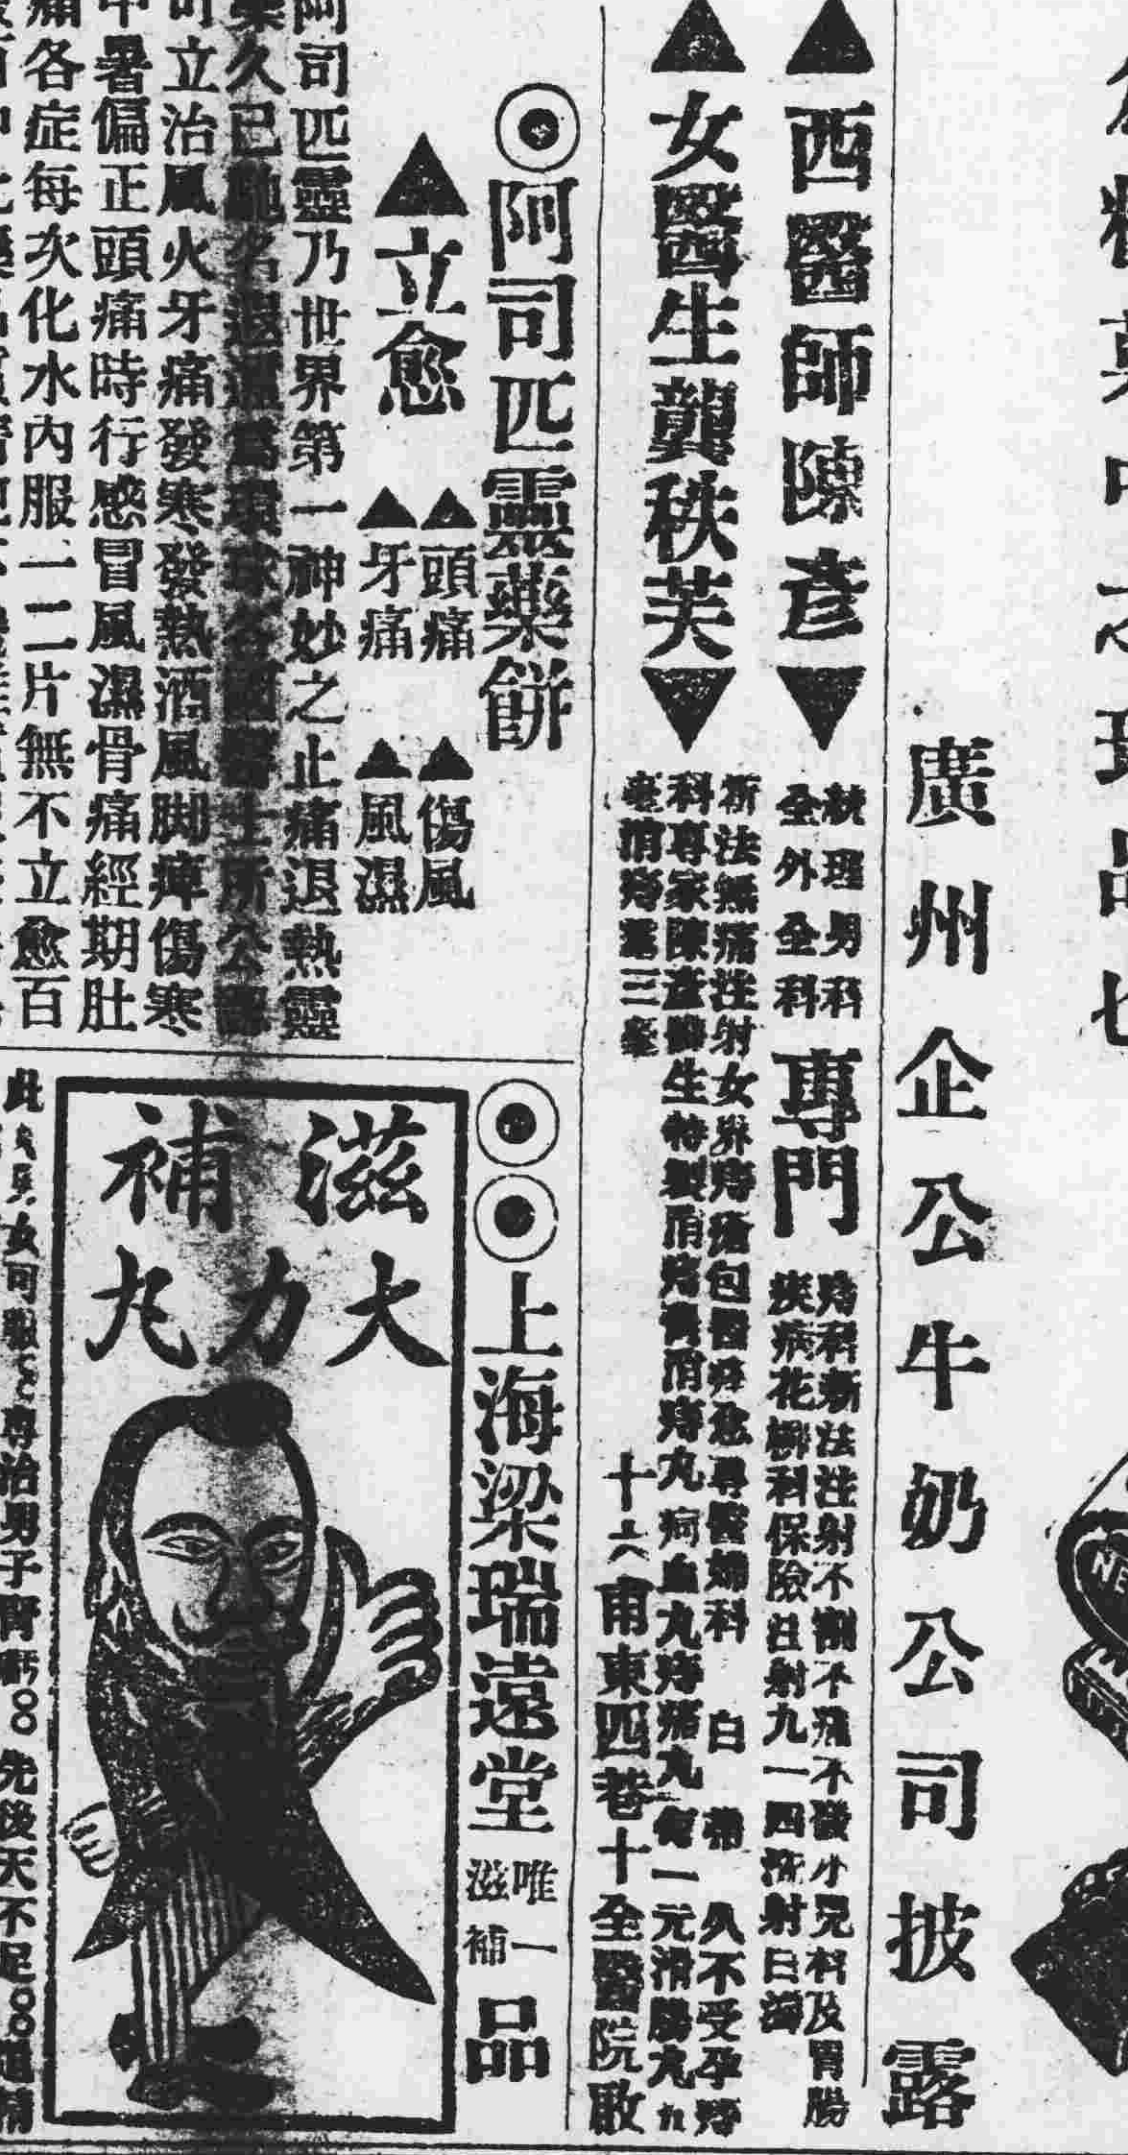 中之珍品也
廣州企公牛奶公司披露
▲西醫師陳彥▼
統理男科
全外全科
專門
痔科新法注射不割不痛不發小兒科及胃腸
疾病花柳科保險注射九一四
▲女醫生龔秩芙▼
新法無痛注射女界痔瘡包醫
婦科
白帶
久不受孕
科專家陳彥醫生特製消痔
消痔丸
毫消痔
三毫
十六甫東四巷十全醫院啟
◉阿司匹靈藥餅
▲立愈
▲頭痛
▲牙痛
▲傷風
▲風濕
阿司匹靈乃世界第一神妙之止痛退熱靈
藥久已馳名遐邇為環球各國醫士所公認
可立治風火牙痛發寒發熱酒風脚痺傷寒
中暑偏正頭痛時行感冒風濕骨痛經期肚
痛各症每次化水內服一二片無不立愈百
◉◉上海梁瑞遠堂
唯一
滋補
品
滋補
大力丸
女可服
專治男子腎虧
先後天不足